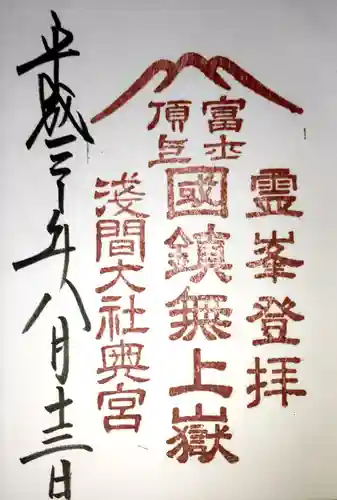 霊峯登拝
富士
頂上
國鎮無上嶽
淺間大社奥宮
平成三十年八月十三日